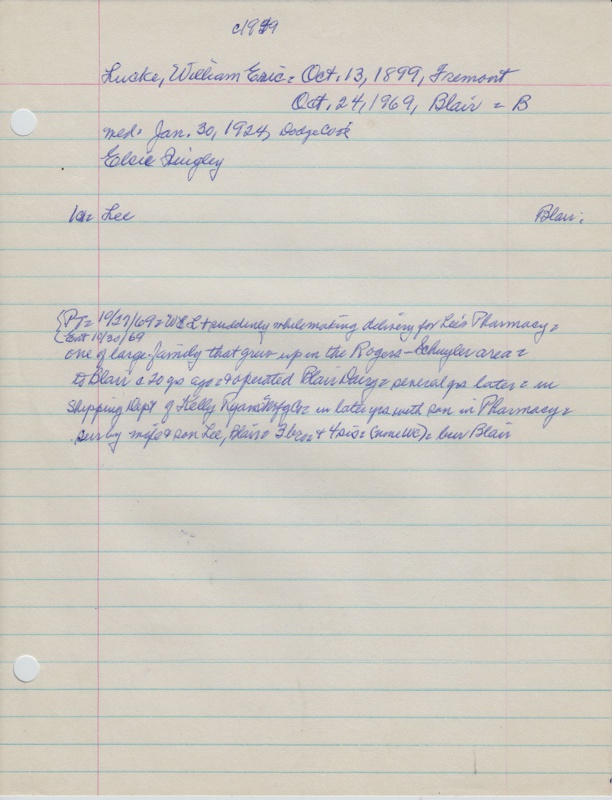 Lucke, William Eric = Oct. 13, 1899, Fremont
Oct. 24, 1969, Blair = B
med. Jan. 30, 1924, Dodge Co
Elsie
1a = Lee Blair.
10/27/69 = W E L + suddenly while making delivery for Lee's Pharmacy =
Ent 10/30/69
one of large family that grew up in the Rogers-Schuyler area =
to Blair c 20 ys ago = + operated Blair = several ys later = in
Shipping Dept of Kelly Ryan = in later yrs with son in Pharmacy =
sur by wife + son Lee, Blair = 3 bros + 4 sis = = bur Blair